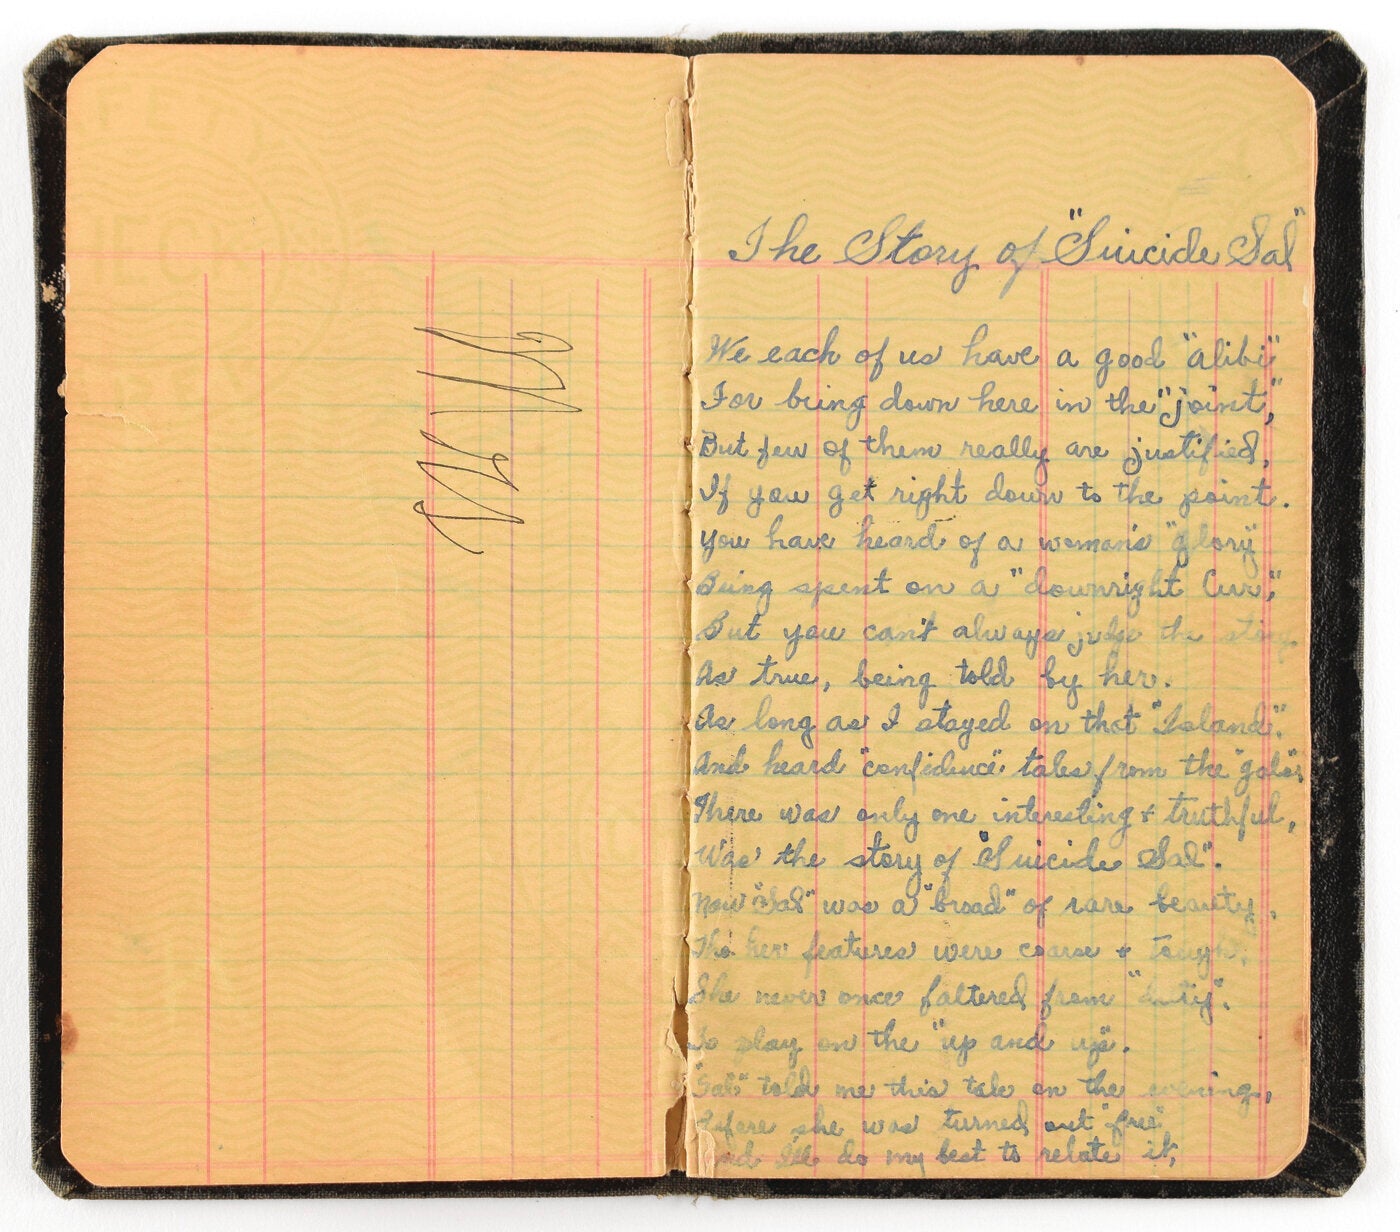 The Story of "Suicide Sal"
We each of us have a good "alibi"
For being down here in the "joint",
But few of them really are justified,
If you get right down to the point.
You have heard of a woman's "glory"
Being spent on a "downright Cur",
But you can't always judge the story
As true, being told by her.
As long as I stayed on that "Island".
And heard "confidence" tales from the "gals"
There was only one interesting & truthful,
Was the story of "Suicide Sal".
Now "Sal" was a "broad" of rare beauty,
Tho her features were coarse & tough,
She never once faltered from "duty".
To play on the "up and up".
"Sal" told me this tale on the evening,
Before she was turned out "free"
And I'll do my best to relate it,